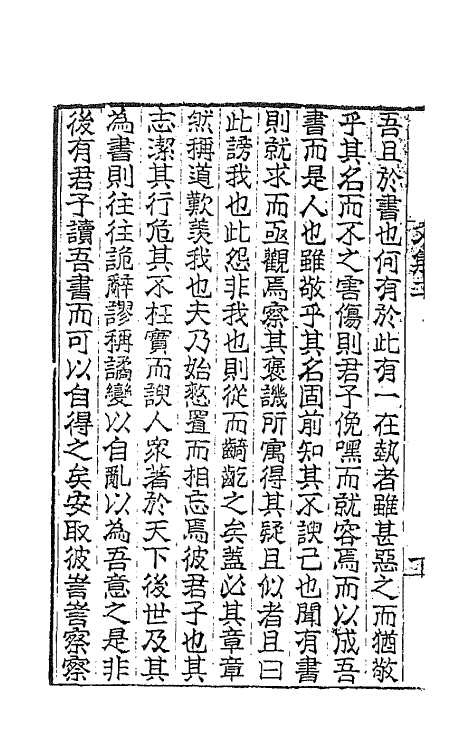 吾且於書也何有於此有一在埶者雖甚惡之而猶敬
乎其名而不之害傷則君子俛嘿而就容焉而以成吾
書而是人也雖敬乎其名固前知其不諛己也聞有書
則就求而亟觀焉察其褒譏所寓得其疑且似者且曰
此謗我也此怨非我也則從而齮齕之矣蓋必其章章
然稱道歎羨我也夫乃始慭置而相忘焉彼君子也其
志潔其行危其不枉實而諛人衆著於天下後世及其
為書則往往詭辭謬稱譎變以自亂以為吾意之是非
後有君子讀吾書而可以自得之矣安取彼訔訔察察
文集二